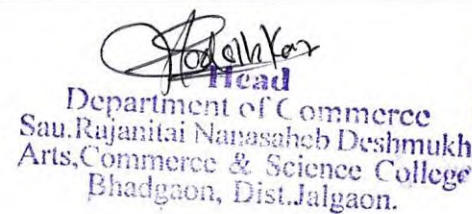 Head
Department of Commerce
Sau.Rajanitai Nanasaheb Deshmukh
Arts,Commerce & Science College
Bhadgaon, Dist.Jalgaon.